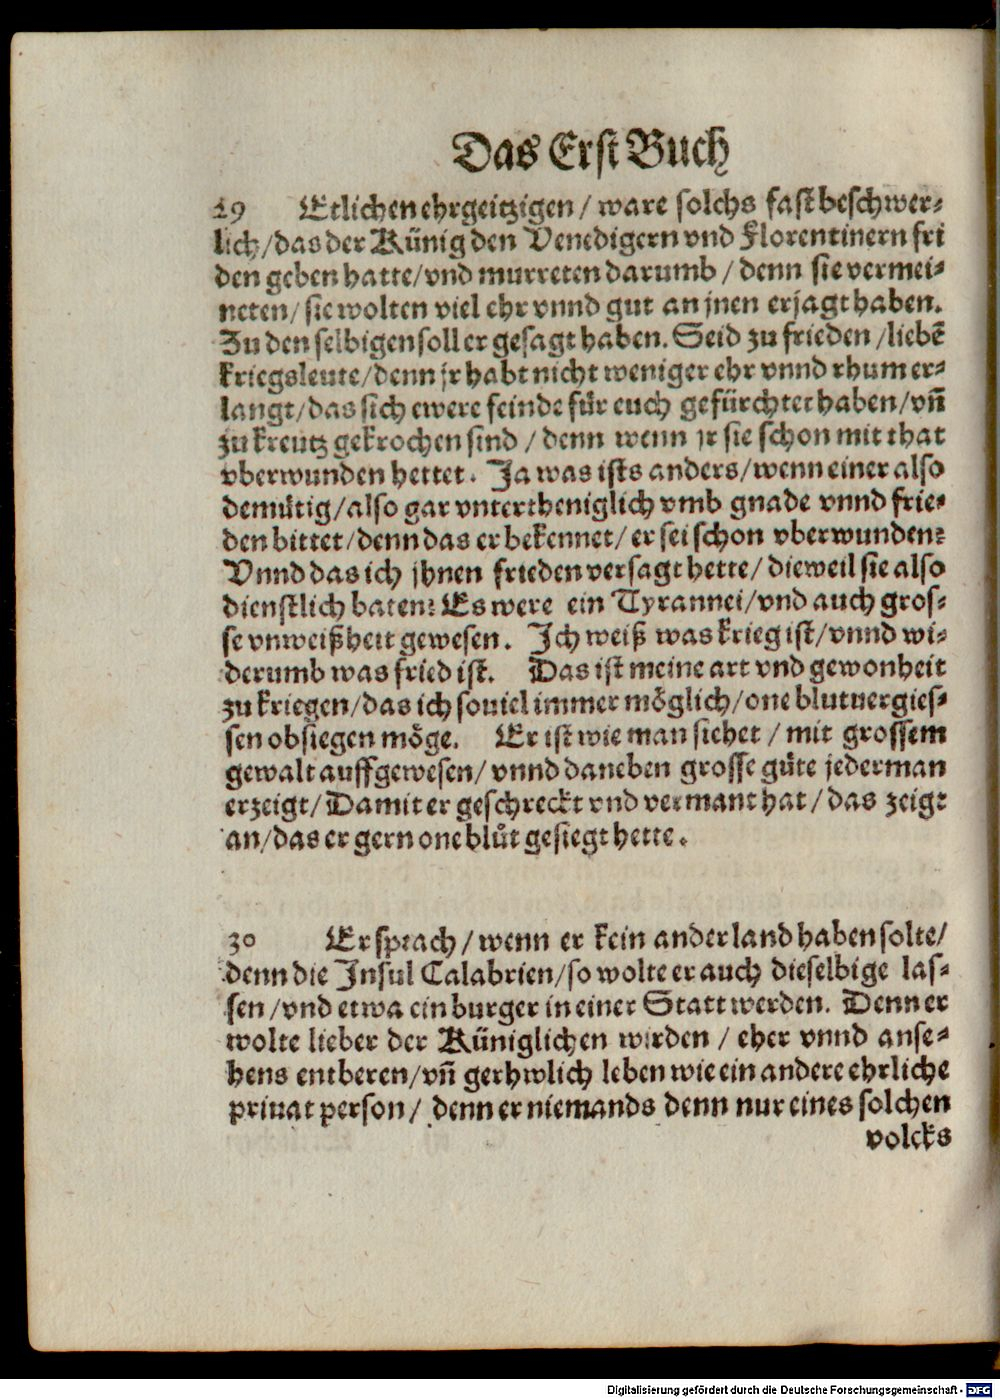 Das Erst Buch
29 Etlichen ehrgeitzigen / ware solchs fast beschwer⸗
lich / das der Künig den Venedigern vnd Florentinern fri
den geben hatte / vnd murreten darumb / denn sie vermei⸗
neten / sie wolten viel ehr vnnd gut an jnen erjagt haben.
Zu den selbigen soll er gesagt haben. Seid zu frieden / liebē
kriegsleute / denn jr habt nicht weniger ehr vnnd rhum er⸗
langt / das sich ewere feinde für euch gefürchtet haben / vñ
zu kreutz gekrochen sind / denn wenn jr sie schon mit that
vberwunden hettet. Ja was ists anders / wenn einer also
demütig / also gar vntertheniglich vmb gnade vnnd frie⸗
den bittet / denn das er bekennet / er sei schon vberwunden?
Vnnd das ich jhnen frieden versagt hette / dieweil sie also
dienstlich baten? Es were ein Tyrannei / vnd auch gros⸗
se vnweißheit gewesen. Ich weiß was krieg ist / vnnd wi⸗
derumb was fried ist. Das ist meine art vnd gewonheit
zu kriegen / das ich souiel immer möglich / one blutuergies⸗
sen obsiegen möge. Er ist wie man siehet / mit grossem
gewalt auffgewesen / vnnd daneben grosse güte jederman
erzeigt / Damit er geschreckt vnd vermant hat / das zeigt
an / das er gern one blůt gesiegt hette.
30 Er sprach / wenn er kein ander land haben solte /
denn die Insul Calabrien / so wolte er auch dieselbige las⸗
sen / vnd etwa ein burger in einer Statt werden. Denn er
wolte lieber der Küniglichen wirden / eher vnnd anse⸗
hens entberen / vñ gerhwlich leben wie ein andere ehrliche
priuat person / denn er niemands denn nur eines solchen
volcks
Digitalisierung gefördert durch die Deutsche Forschungsgemeinschaft - DFG